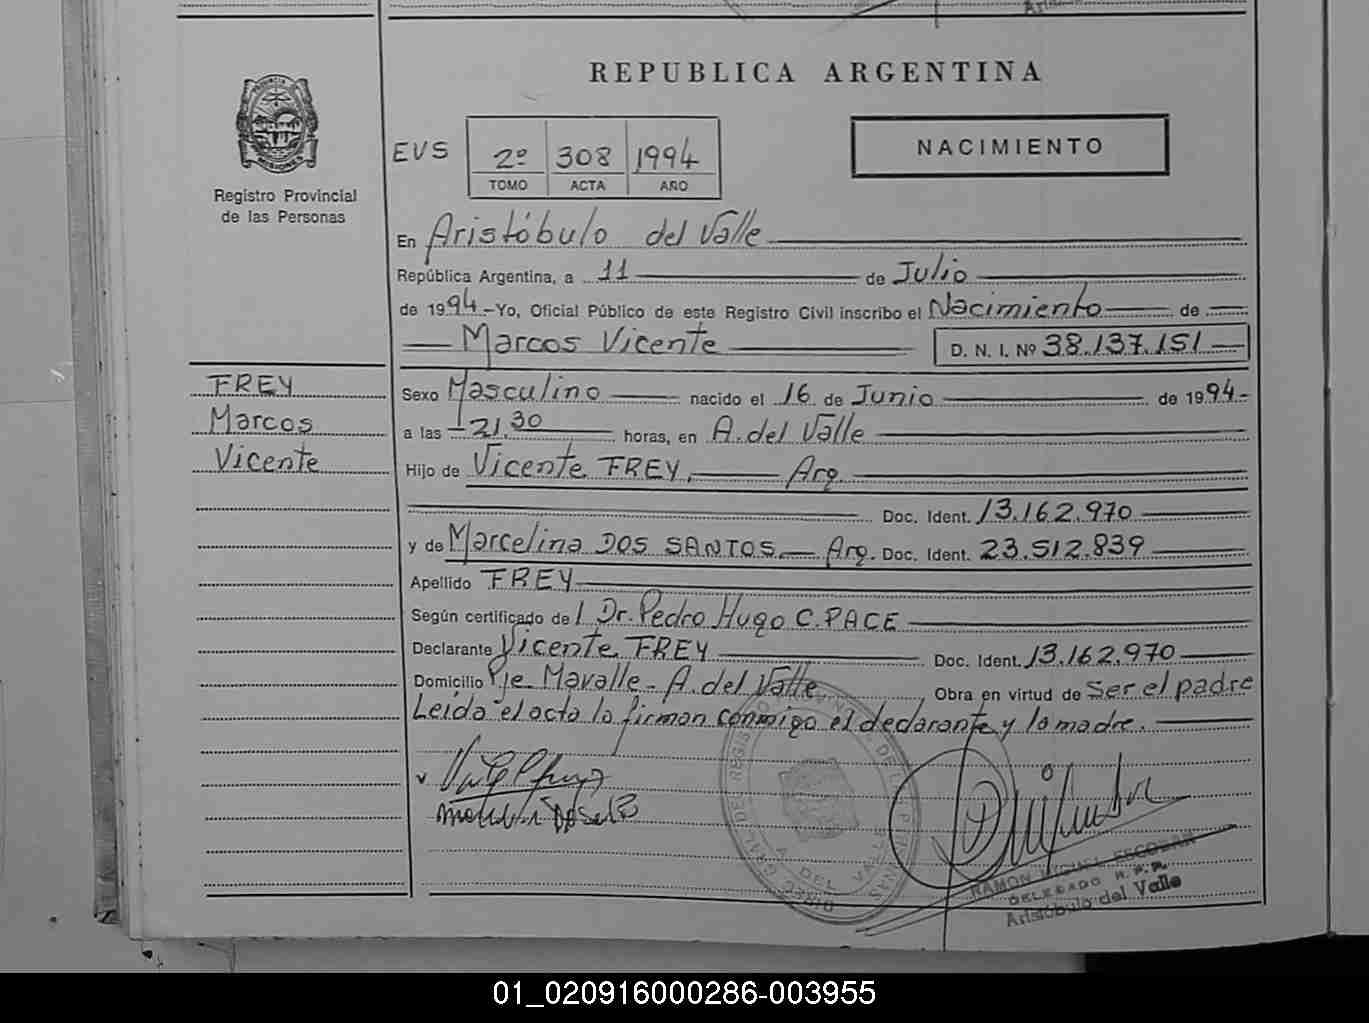 REPUBLICA ARGENTINA
PROVINCIA
MISIONES
Registro Provincial
de las Personas
EVS
2º 308 1994
TOMO ACTA AÑO
NACIMIENTO
En Aristóbulo del Valle
República Argentina, a 11 de Julio
de 1994.-Yo, Oficial Público de este Registro Civil inscribo el Nacimiento de
Marcos Vicente D. N. I. Nº 38.137.151
FREY
Marcos
Vicente
Sexo Masculino nacido el 16 de Junio de 1994.-
a las 21.30 horas, en A. del Valle
Hijo de Vicente FREY, Arg.
Doc. Ident. 13.162.970
y de Marcelina DOS SANTOS. Arg. Doc. Ident. 23.512.839
Apellido FREY
Según certificado del Dr. Pedro Hugo C. PACE
Declarante Vicente FREY Doc. Ident. 13.162.970
Domicilio Pje. Mavalle - A. del Valle Obra en virtud de ser el padre
Leída el acta la firman conmigo el declarante y la madre.
RAMON MIGUEL ESCOBAR
DELEGADO R.P.P.
Aristóbulo del Valle
01_020916000286-003955